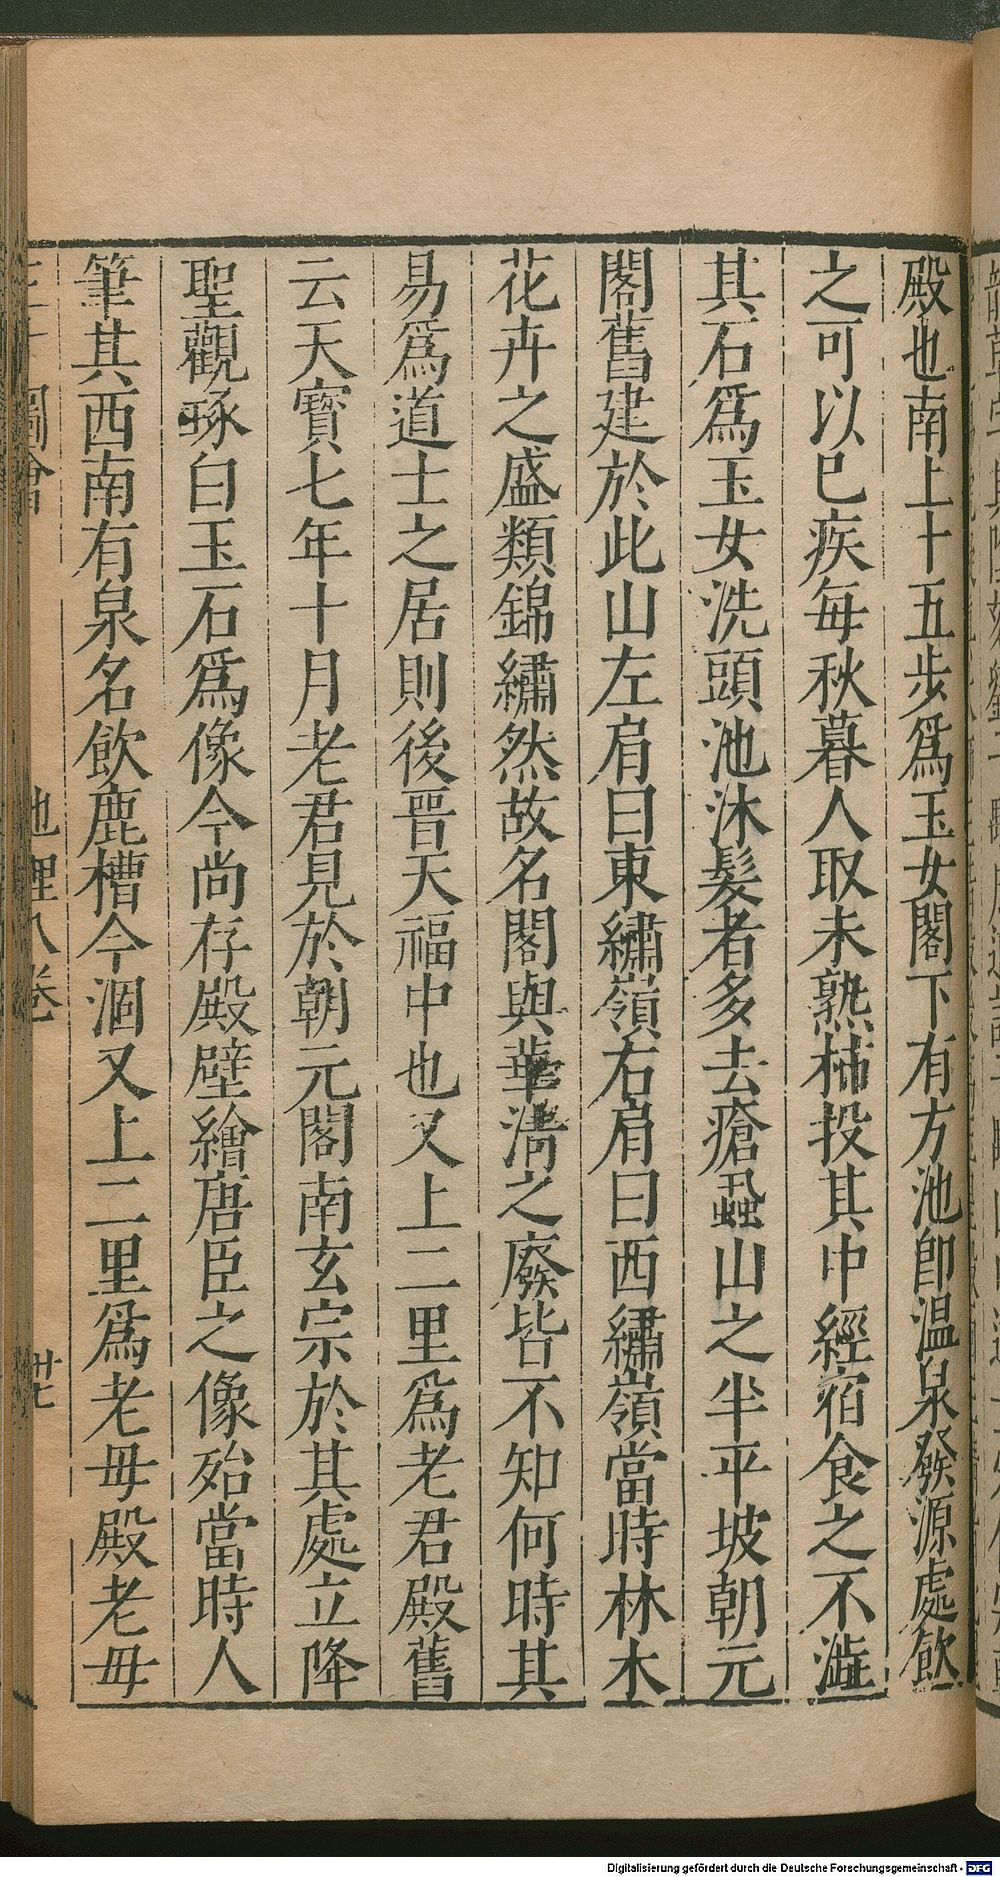 殿也南上十五步爲玉女閣下有方池即温泉發源處飲
之可以已疾每秋暮人取未熟柿投其中經宿食之不澁
其石爲玉女洗頭池沐髮者多去瘡蝨山之半平坡朝元
閣舊建於此山左肩曰東繡嶺右肩曰西繡嶺當時林木
花卉之盛類錦繡然故名閣與華淸之廢皆不知何時其
易爲道士之居則後晉天福中也又上二里爲老君殿舊
云天寳七年十月老君見於朝元閣南玄宗於其處立降
聖觀琢白玉石爲像今尚存殿壁繪唐臣之像殆當時人
筆其西南有泉名飲鹿槽今涸又上二里爲老毋殿老毋
圖會 地理八卷 卅七
Digitalisierung gefördert durch die Deutsche Forschungsgemeinschaft - DFG